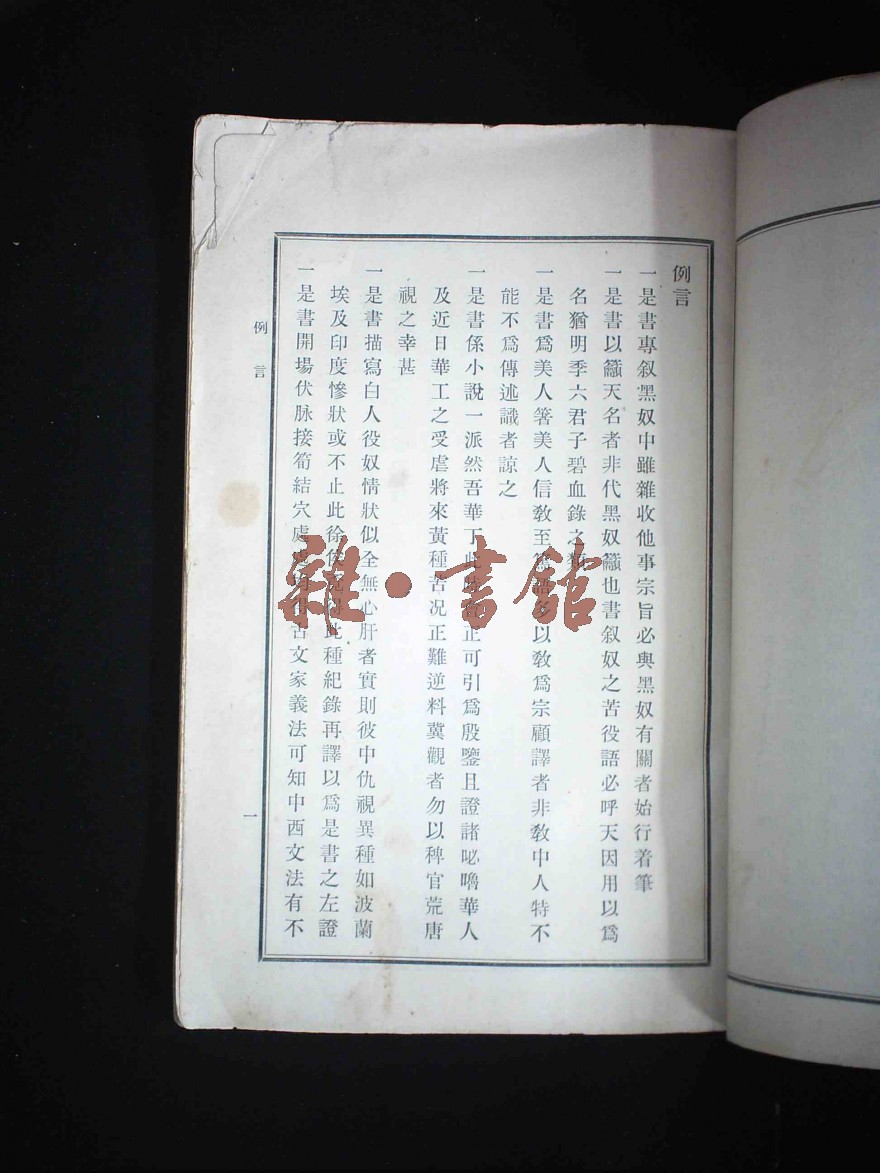 例言
一是書專叙黑奴中雖雜收他事宗旨必與黑奴有關者始行着筆
一是書以籲天名者非代黑奴籲也書叙奴之苦役語必呼天因用以爲
名猶明季六君子碧血錄之類
一是書爲美人箸美人信敎至篤語多以敎爲宗顧譯者非敎中人特不
能不爲傳述識者諒之
一是書係小說一派然吾華丁此時會正可引爲殷鑒且證諸呏嚕華人
及近日華工之受虐將來黃種苦况正難逆料冀觀者勿以稗官荒唐
視之幸甚
一是書描寫白人役奴情狀似全無心肝者實則彼中仇視異種如波蘭
埃及印度慘狀或不止此徐俟此種紀錄再譯以爲是書之左證
一是書開場伏脉接筍結穴處古文家義法可知中西文法有不
例言
一
雜·書館